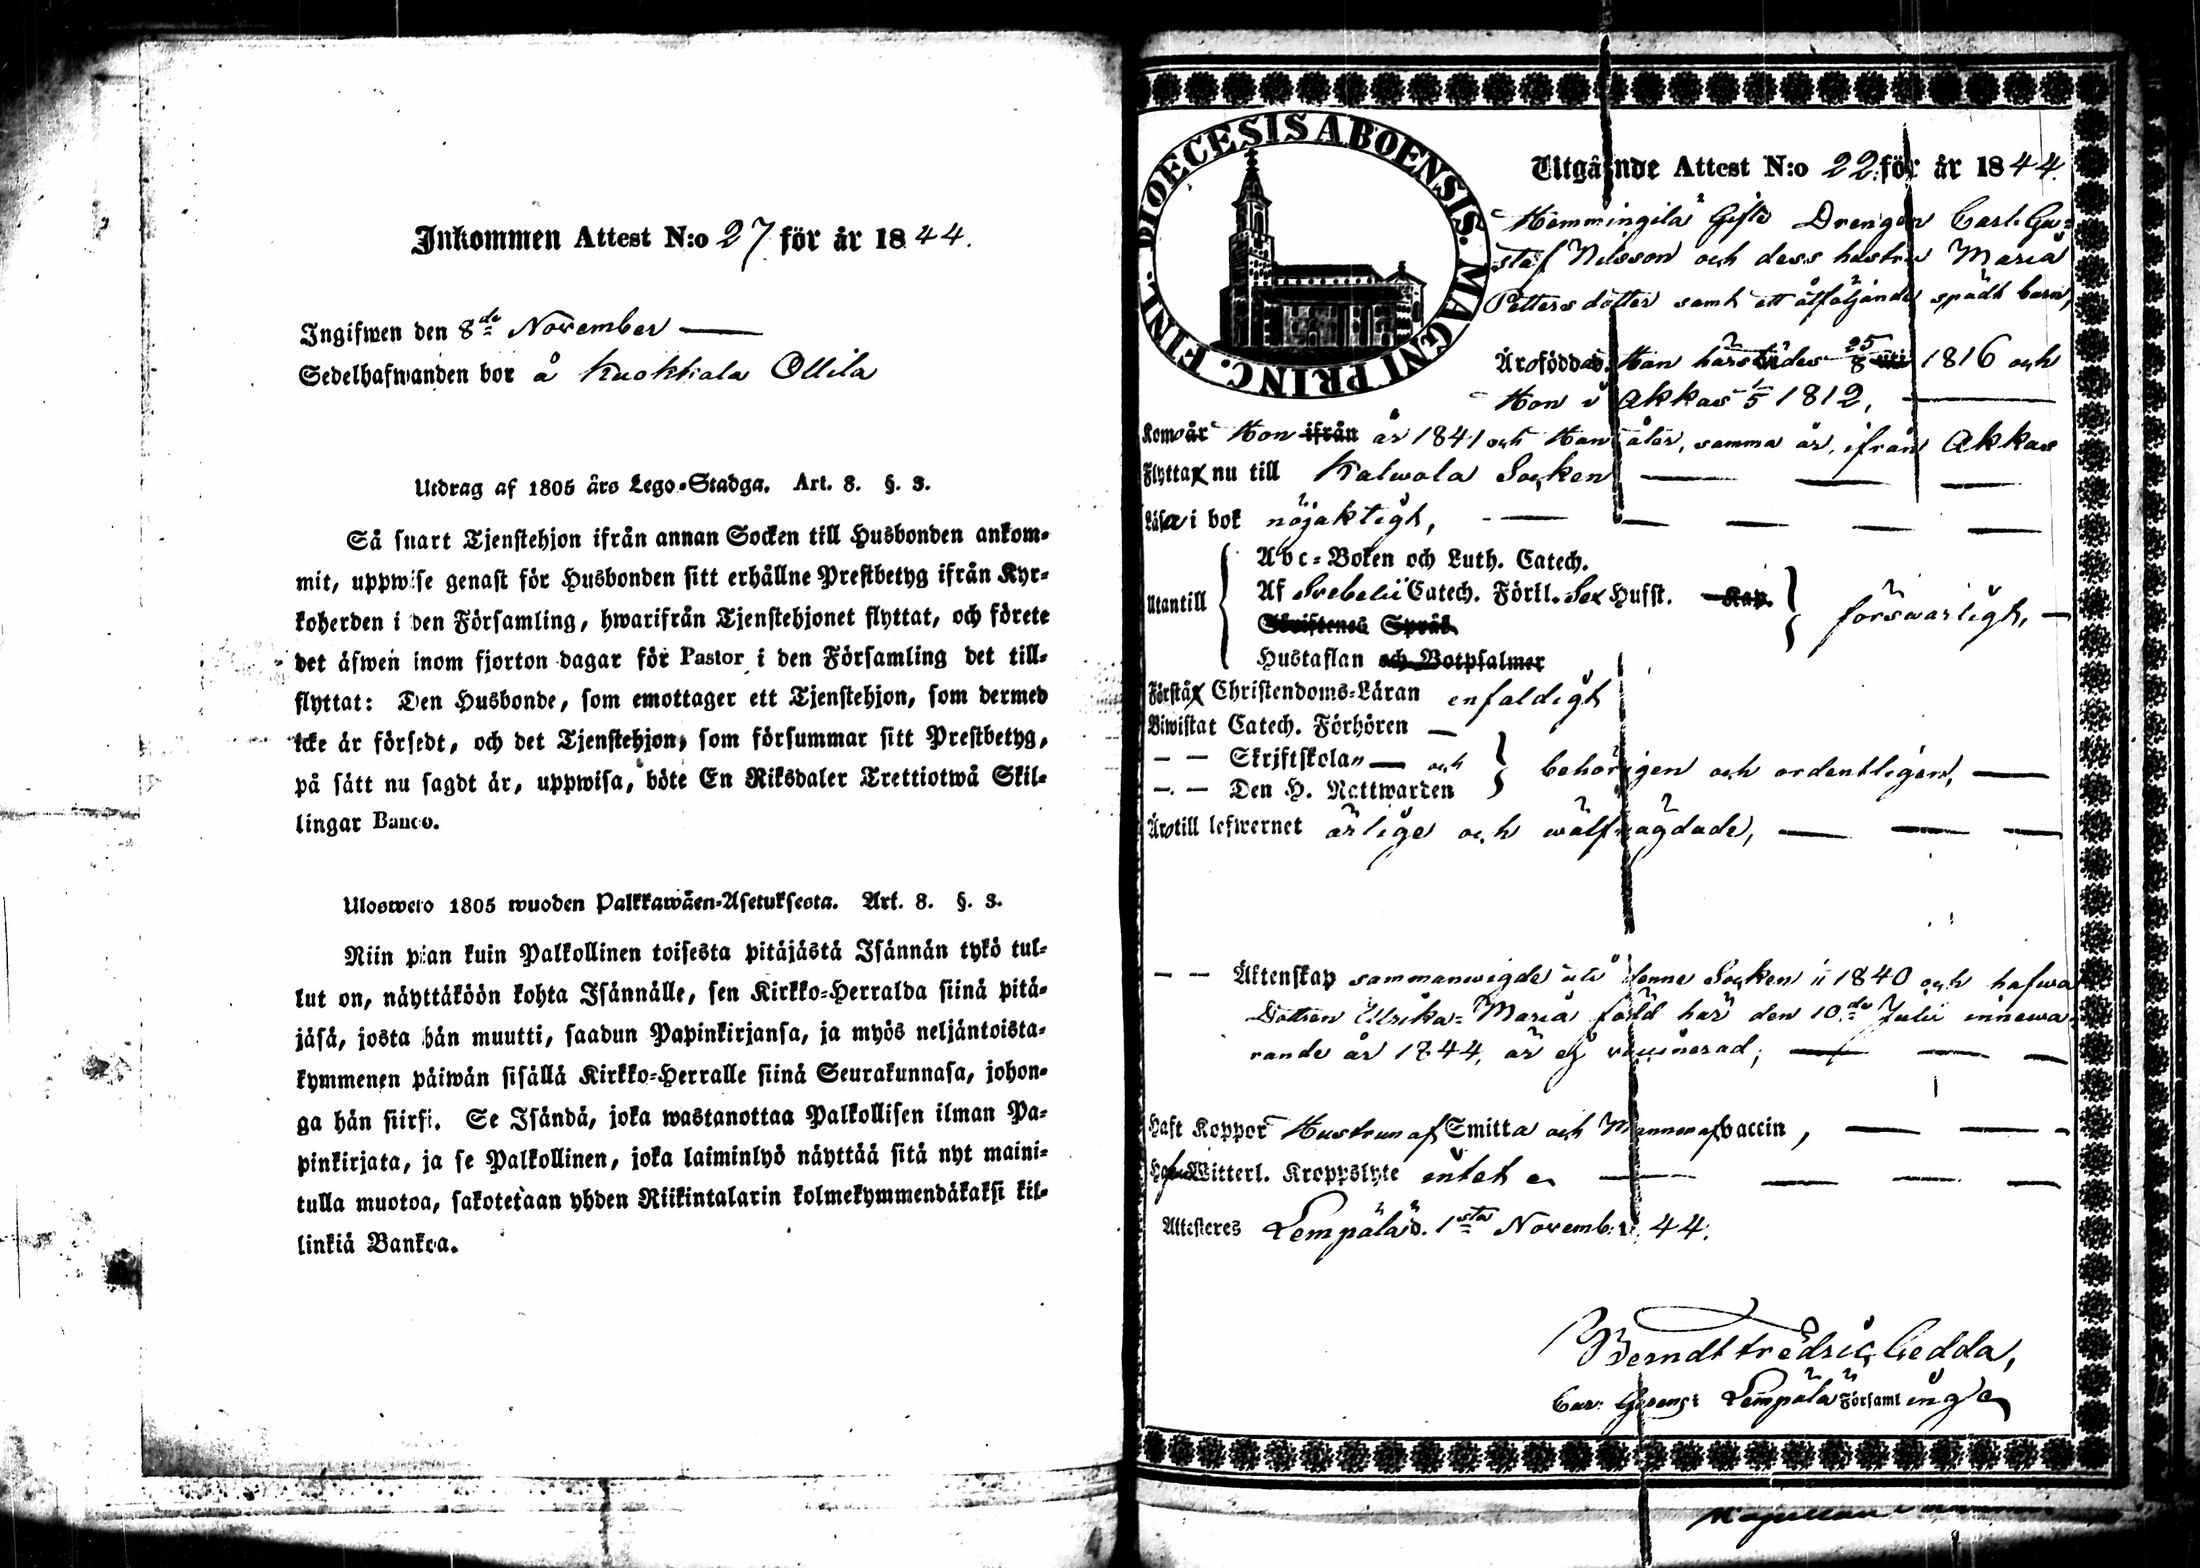 Inkommen Attest N:o 27 för år 1844.
Ingifwen den 8de November
Sedelhafwanden bor å Kuokkala Ollila
Utdrag af 1805 års Lego-Stadga. Art. 8. §. 3.
Så snart Tjenstehjon ifrån annan Socken till Husbonden ankom-
mit, uppwise genast för Husbonden sitt erhållne Prestbetyg ifrån Kyr-
koherden i den Församling, hwarifrån Tjenstehjonet flyttat, och förete
det äfwen inom fjorton dagar för Pastor i den Församling det till-
flyttat: Den Husbonde, som emottager ett Tjenstehjon, som dermed
icke är försedt, och det Tjenstehjon, som försummar sitt Prestbetyg,
på sätt nu sagdt är, uppwisa, böte En Riksdaler Trettiotwå Skil-
lingar Banco.
Ulosweto 1805 wuoden Palkkawäen-Asetuksesta. Art. 8. §. 3.
Niin pian kuin Palkollinen toisesta pitäjästä Isännän tykö tul-
lut on, näyttäköön kohta Isännälle, sen Kirkko-Herralda siinä pitä-
jäsä, josta hän muutti, saadun Papinkirjansa, ja myös neljäntoista-
kymmenen päiwän sisällä Kirkko-Herralle siinä Seurakunnasa, johon-
ga hän siirsi. Se Isändä, joka wastanottaa Palkollisen ilman Pa-
pinkirjata, ja se Palkollinen, joka laiminlyö näyttää sitä nyt maini-
tulla muotoa, sakotetaan yhden Riikintalarin kolmekymmendäkaksi kil-
linkiä Bankoa.
DIOECESIS ABOENSIS. MAGNI PRINC. FINL.
Utgående Attest N:o 22 för år 1844.
Hemmingilä Gifte Drengen Carl Gu-
staf Nilsson och dess hustru Maria
Petters dotter samt ett åtföljande spädt barn,
Äro födda: Han härstädes 25/8 1816 och
Hon i Akkas 1/5 1812,
Kom Hon ifrån år 1841 och Han åter, samma år, ifrån Akkas
Flytta nu till Kalwola Socken
Läsa i bok nöjaktigt,
Utantill
Abc-Boken och Luth. Catech.
Af Svebelii Catech. Förkl. Sex Hufst. Kap.
försvarligt,
Skriftenes Språk
Hustaflan och Botpsalmer
Förstå Christendoms-Läran enfaldigt
Biwistat Catech. Förhören
Skriftskolan och
behörigen och ordentligen,
Den H. Nattwarden
Äro till lefwernet ärlige och wälfrägdade,
Äktenskap sammanwigde uti denne Socken 1840 och hafwa
Dottren Ulrika Maria född här den 10de Julii innewa-
rande år 1844, är ej vaccinerad,
Haft Koppor Hustrun af Smitta och Mannen af vaccin,
Hafwa Witterl. Kroppslyte intet
Attesteres Lempälä d. 1sta Novemb. 1844.
Berndt Fredric Gedda,
Lempälä Församling